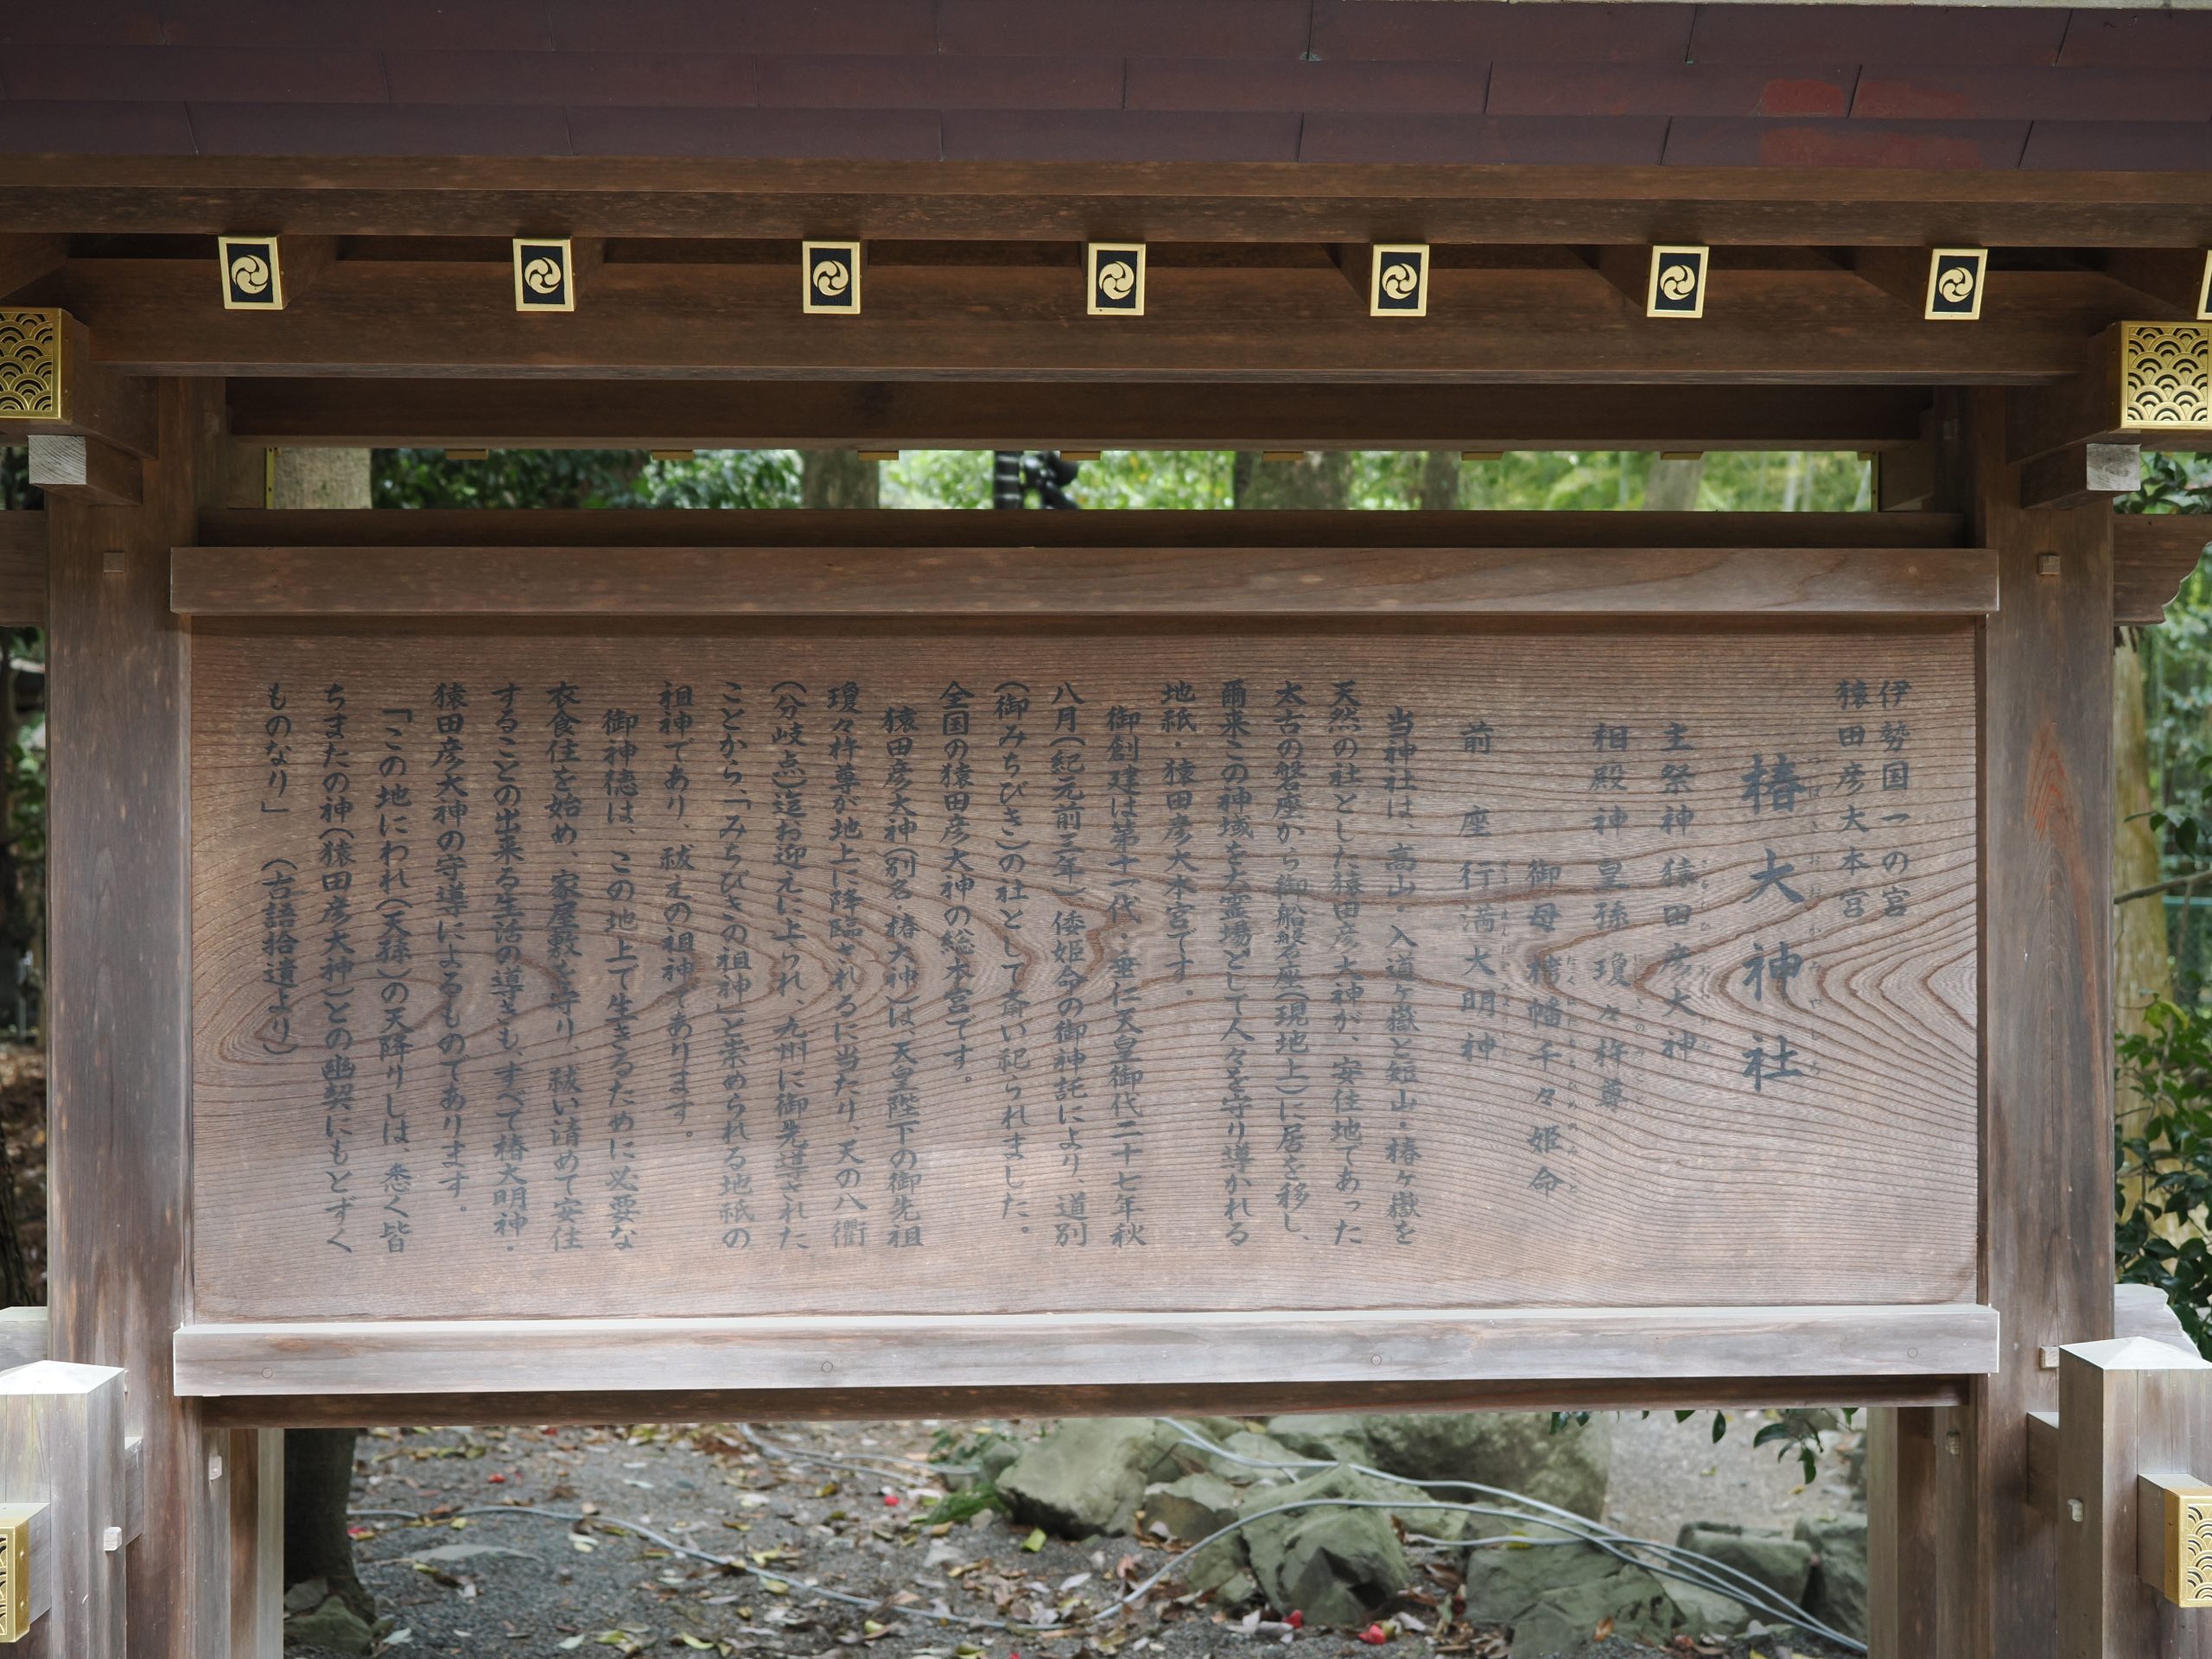 伊勢国一の宮
猿田彦大本宮
椿大神社
つばきおおかみやしろ
主祭神 猿田彦大神
相殿神 皇孫 瓊々杵尊
御母 栲幡千々姫命
前座 行満大明神
当神社は、高山・入道ヶ嶽と短山・椿ヶ嶽を
天然の社とした猿田彦大神が、安住地であった
太古の磐座から御船磐座(現地上)に居を移し、
爾来この神域を大霊場として人々を守り導かれる
地紙・猿田彦大本宮です。
御創建は第十一代・垂仁天皇御代二十七年秋
八月(紀元前三年)、倭姫命の御神託により、道別
(御みちびき)の社として斎い祀られました。
全国の猿田彦大神の総本宮です。
猿田彦大神(別名 椿大神)は、天皇陛下の御先祖
瓊々杵尊が地上に降臨されるに当たり、天の八衢
(分岐点)迄お迎えに上られ、九州に御先導された
ことから、「みちびきの祖神」と崇められる地紙の
祖神であり、祓えの祖神であります。
御神徳は、この地上で生きるために必要な
衣食住を始め、家屋敷を守り、祓い清めて安住
することの出来る生活の導きも、すべて椿大明神・
猿田彦大神の守導によるものであります。
「この地にわれ(天孫)の天降りしは、悉く皆
ちまたの神(猿田彦大神)との幽契にもとずく
ものなり」 (古語拾遺より)